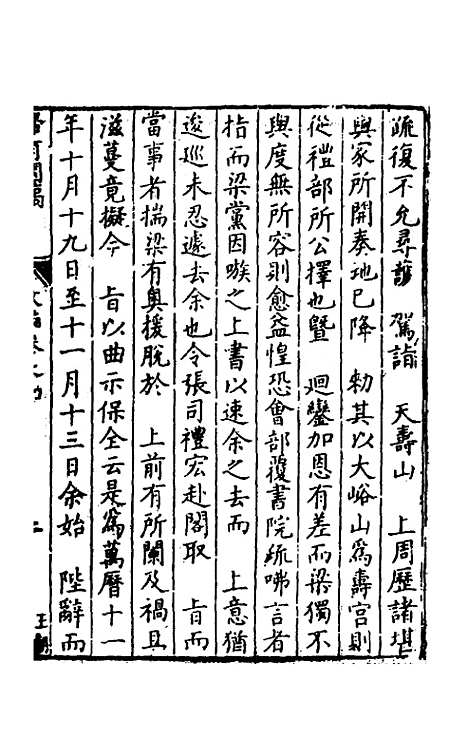 疏復不允尋謝　駕詣　天壽山　上周歷諸堪
輿家所開奏地已降　勑其以大峪山爲壽宮則
從禮部所公擇也曁　迴鑾加恩有差而梁獨不
與度無所容則愈益惶恐會部覆書院疏咈言者
指而梁黨因嗾之上書以速余之去而　上意猶
逡巡未忍遽去余也令張司禮宏赴閣取　旨而
當事者揣梁有奧援脫於　上前有所闌及禍且
滋蔓竟擬今　旨以曲示保全云是爲萬曆十一
年十月十九日至十一月十三日余始　陛辭而